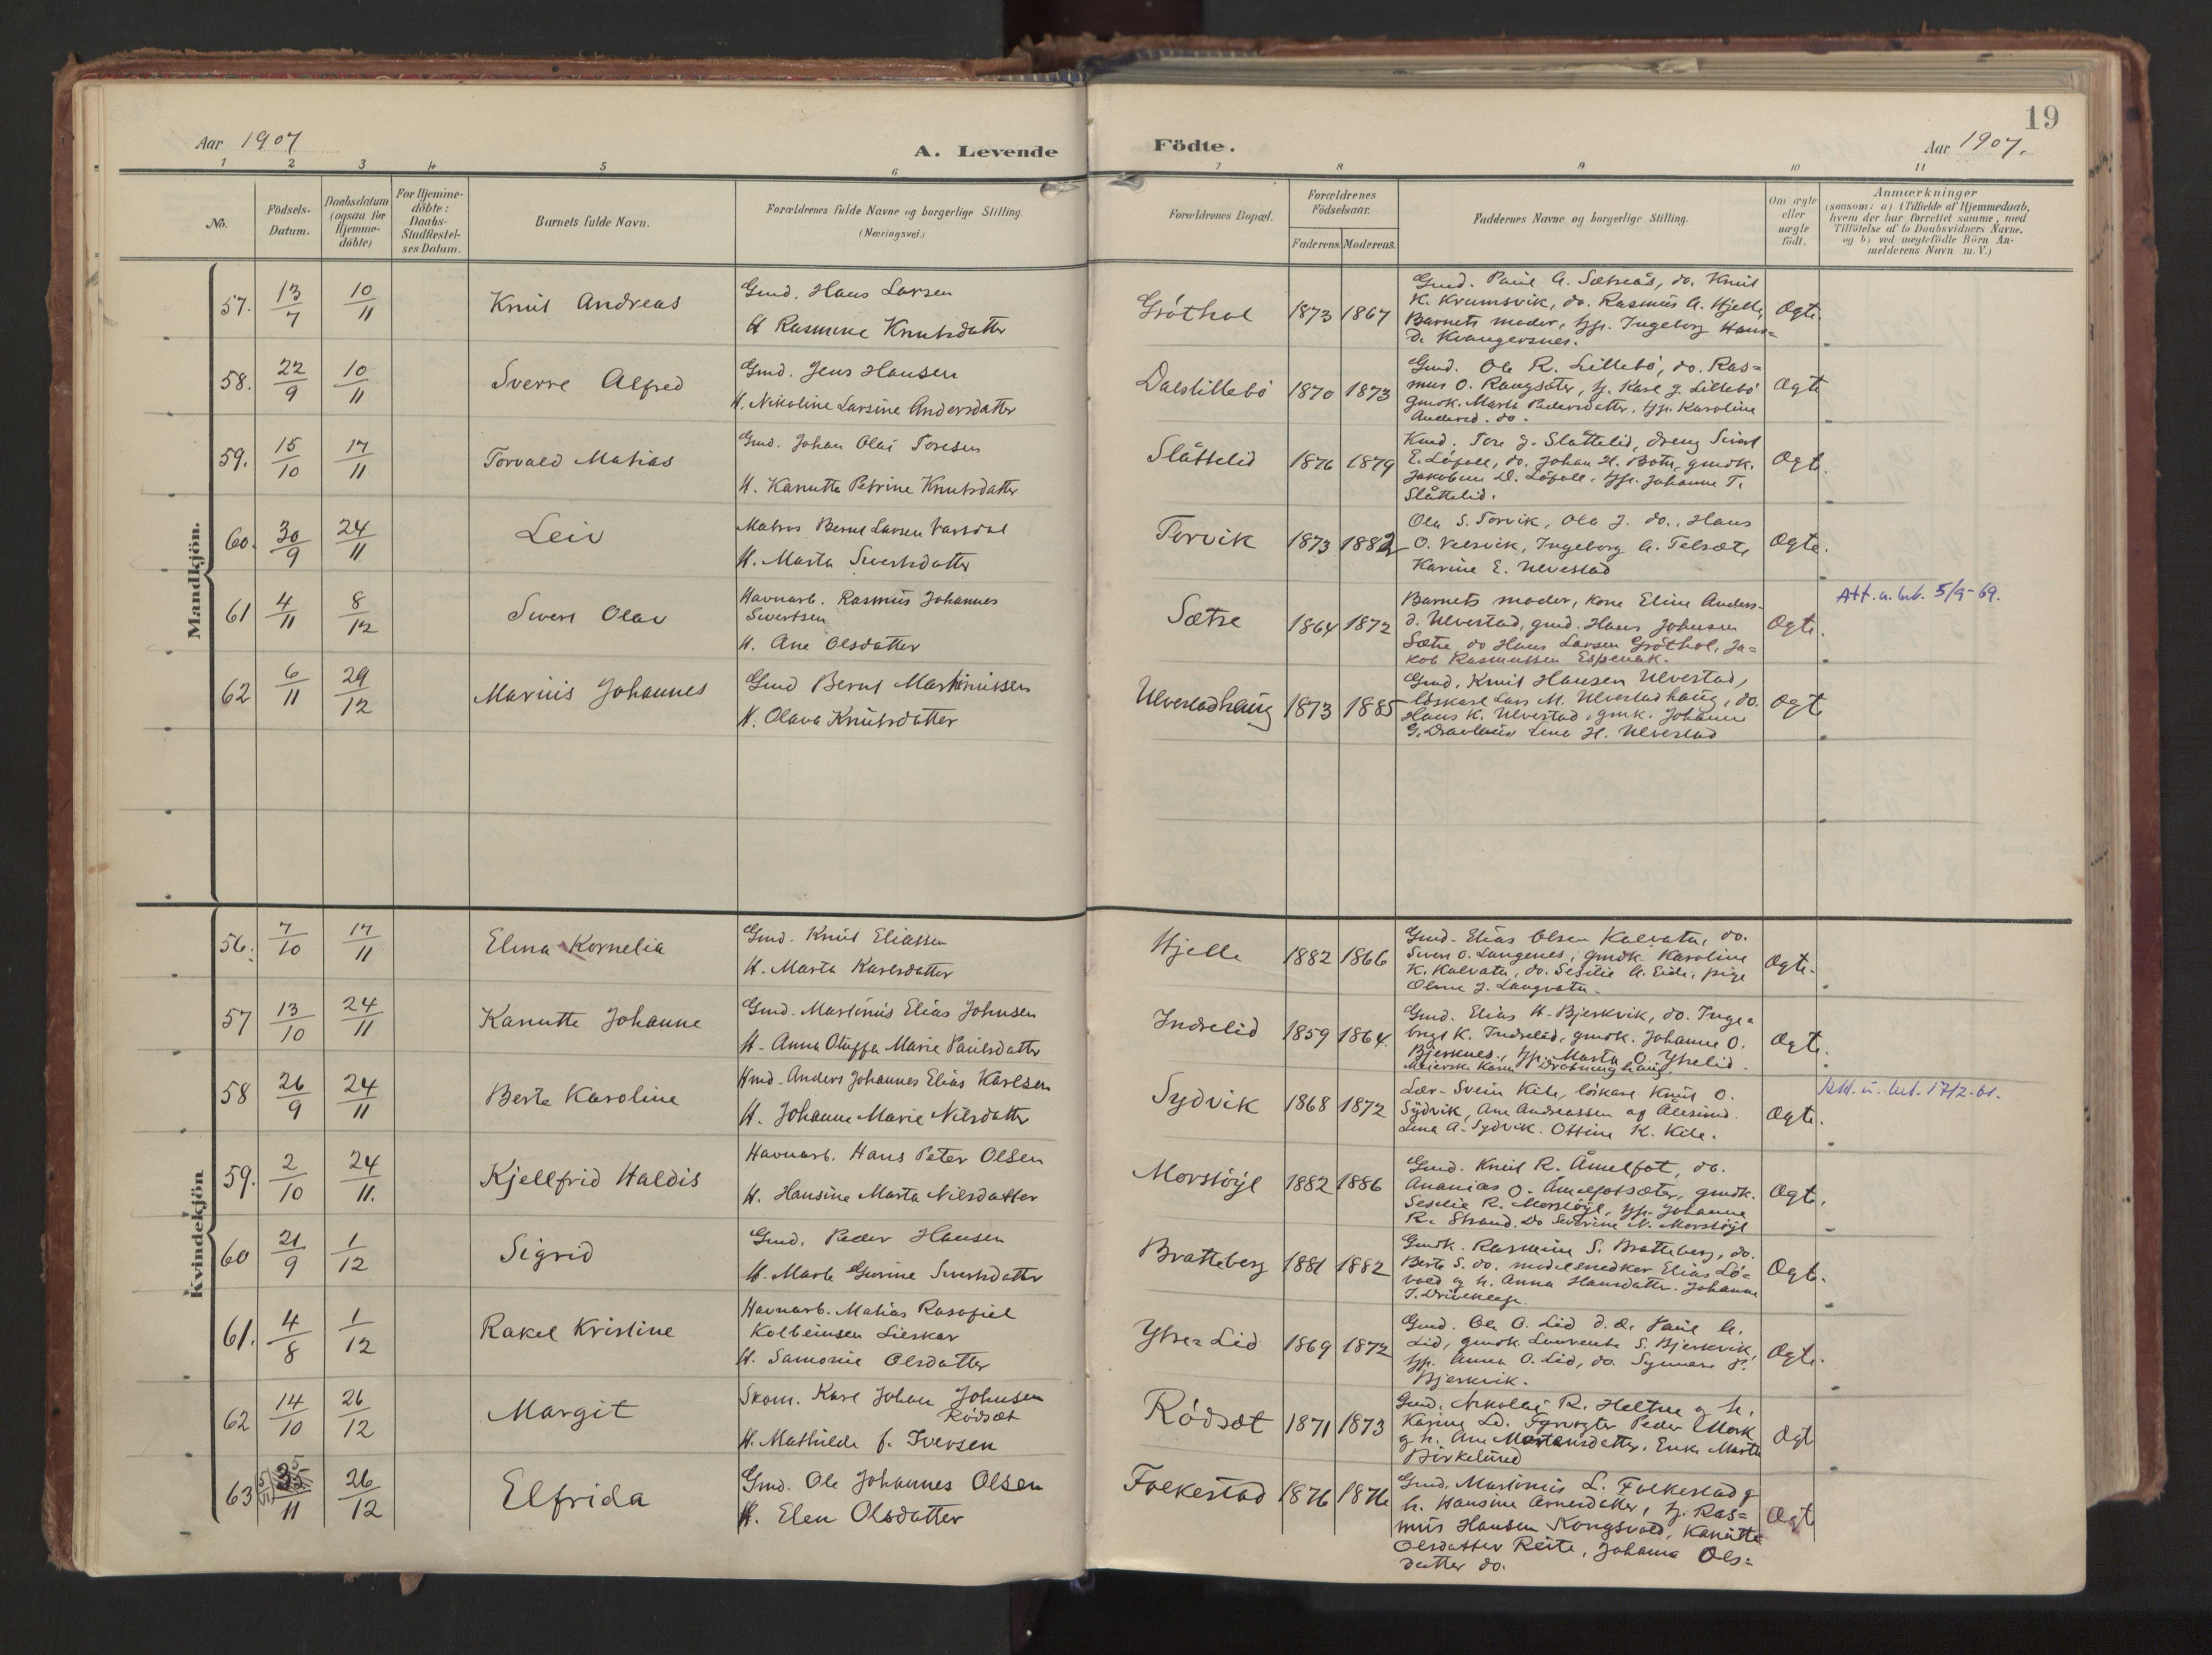 19
Aar 1907
A. Levende
Födte.
Aar 1907.
1 2 3 4 5 6 7 8 9 10 11
No.
Födsels-
Datum.
Daabsdatum
(ogsaa for
Hjemme-
döbte)
For Hjemme-
döbte:
Daabs-
Stadfæstel-
ses Datum.
Barnets fulde Navn.
Forældrenes fulde Navne og borgerlige Stilling.
(Næringsvei.)
Forældrenes Bopæl.
Forældrenes
Födselsaar.
Faderens. Moderens.
Faddernes Navne og borgerlige Stilling.
Om ægte
eller
uægte
födt.
Anmærkninger
(saasom: a) i Tilfælde af Hjemmedaab,
hvem der har forrettet samme, med
Tilföielse af to Daabsvidners Navne,
og b) ved uægtefödte Börn An-
melderens Navn m. V.)
Mandkjön.
57. 13/7 10/11 Knut Andreas
Gmd. Hans Larsen
H Rasmine Knutsdatter
Gröthol 1873 1867
Gmd. Paul A. Sætreås, do. Knut
K. Krumsvik, do. Rasmus A. Hjelle,
Barnets moder, pp. Ingeborg Hans=
d. Kvangersnes.
Ægte.
58. 22/9 10/11 Sverre Alfred
Gmd. Jens Hansen
H. Nikoline Larsine Andersdatter
Dalslillebö 1870 1873
Gmd. Ole R. Lillebö, do. Ras=
mus O. Raugsæter, Kare J. Lillebö
gmdk. Marta Pedersdatter, pp. Karoline
Andersd. do.
Ægte
59. 15/10 17/11 Torvald Matias
Gmd. Johan Olai Toresen
H. Kanutta Petrine Knutsdatter
Slåttelid 1876 1879
Kmd. Tore J. Slåttelid, dreng Sivert
E. Löfoll, do. Johan H. Botn, gmdk.
Jakobine D. Löfoll, pp. Johanne T.
Slåttelid.
Ægte.
60. 30/9 24/11 Leiv
Matros Bernt Larsen Vartdal
H. Marta Sivertsdatter
Torvik 1873 1882
Ola S. Torvik, Ola J. do., Hans
O. Velsvik, Ingeborg A. Telsæte
Karine E. Ulvestad
Ægte.
61 4/11 8/12 Sivert Olav
Havnarb. Rasmus Johannes
Sivertsen
H. Ane Olsdatter
Sætre 1864 1872
Barnets moder, kone Eline Anders-
d. Ulvestad, gmd. Hans Johnsen
Sætre do Hans Larsen Gröthol, Ja=
kob Rasmussen Espenak.
Ægte.
Att. u. beb. 5/9-69.
62 6/11 29/12 Marius Johannes
Gmd Bernt Martinussen
H. Olava Knutsdatter
Ulvestadhaug 1873 1885
Gmd. Knut Hansen Ulvestad,
löskarl Lars M. Ulvestadhaug, do.
Hans K. Ulvestad, gmk. Johanne
G. Dravlaus Lina H. Ulvestad
Ægte
Kvindekjön
56. 7/10 17/11 Elina Kornelia
Gmd. Knut Eliassen
H. Marta Karlsdatter
Hjelle 1882 1866
Gmd. Elias Olsen Kalvatn, do.
Sivert O. Langenes, gmdk. Karoline
K. Kalvatn, do. Sesilie A. Eide, pige
Oline J. Langvatn.
Ægte.
57 13/10 24/11 Kanutte Johanne
Gmd. Martinus Elias Johnsen
H. Anna Oluffa Marie Paulsdatter
Indrelid 1859 1864.
Gmd. Elias H. Bjerkvik, do. Inge=
brigt K. Indrelid, gmdk. Johanne O.
Bjerknes, pp. Marta O. Ytrelid.
Meierske Karen P. Dravninghaug.
Ægte.
58 26/9 24/11 Berte Karoline
Hmd. Anders Johannes Elias Karlsen
H. Johanne Marie Nilsdatter
Sydvik 1868 1872
Lær. Svein Kile, löskarl Knut O.
Sydvik, Ane Andreassen af Ålesund.
Lina A. Sydvik. Ottine K. Kile.
Ægte.
Att. u. beb. 17/2-61.
59. 2/10 24/11. Kjellfrid Haldis
Havnarb. Hans Peter Olsen
H. Hansine Marta Nilsdatter
Morstöyl 1882 1886
Gmd. Knut R. Åmelfot, do.
Ananias O. Åmelfotsæter, gmdk.
Sesilie R. Morstöyl, pp. Johanne
R. Strand. Do Severine N. Morstöyl
Ægte.
60 21/9 1/12 Sigrid
Gmd. Peder Hansen
H. Marte Gurine Sivertsdatter
Bratteberg 1881 1882
Gmdk. Rasmine S. Bratteberg, do.
Berte S. do. modelsnedker Elias Lö=
vold g h. Anna Hansdatter. Johanne
Ægte.
61. 4/8 1/12 Rakel Kristine
Havnarb. Matias Rasafiel
Kolbeinsen Lierskar
H. Samonie Olsdatter
Ytre Lid 1869 1872
Gmd. Ole O. Lid d.æ. Paul A.
Lid, gmdk. Laurentse S. Bjerkvik,
pp. Anna O. Lid, do. Synnøve
Bjerkvik.
Ægte.
62 14/10 26/12 Margit
Skom. Karl Johan Johnsen
Rödsæt
H. Mathilde f. Iversen
Rödsæt 1871 1873
Gmd. Nikolai R. Heltne g h.
Karine Ld. Fyrvogter Peder Mork
g h. Ane Martensdatter. Enke Marte
Birkelund
Ægt
63 5/11 26/12 Elfrida
Gmd. Ole Johannes Olsen
H. Elen Olsdatter
Folkestad 1876 1876
Gmd. Martinus L. Folkestad g
h. Hansine Arnesdatter, Ras=
mus Hansen Kongsvold, Kanutte
Olsdatter Reite, Johanna Ols=
datter do.
Ægt